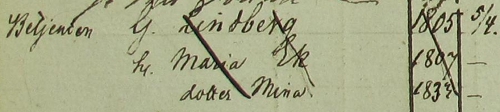 Betjenten G. Lindberg 1805 5/4.
h. Maria Ek 1807 —
dotter Mina 1837 —